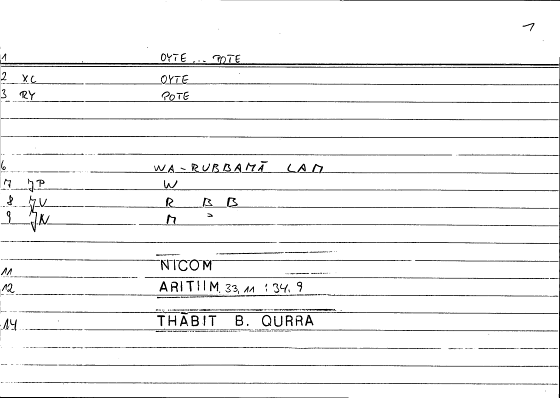 1
1 OYTE ... POTE
2 XC OYTE
3 RY POTE
6 WA-RUBBAMĀ LAM
7 JP W
8 JU R B B
9 JN M ᵓ
11 NICOM
12 ARITIIM 33,11 : 34,9
14 THĀBIT B. QURRA